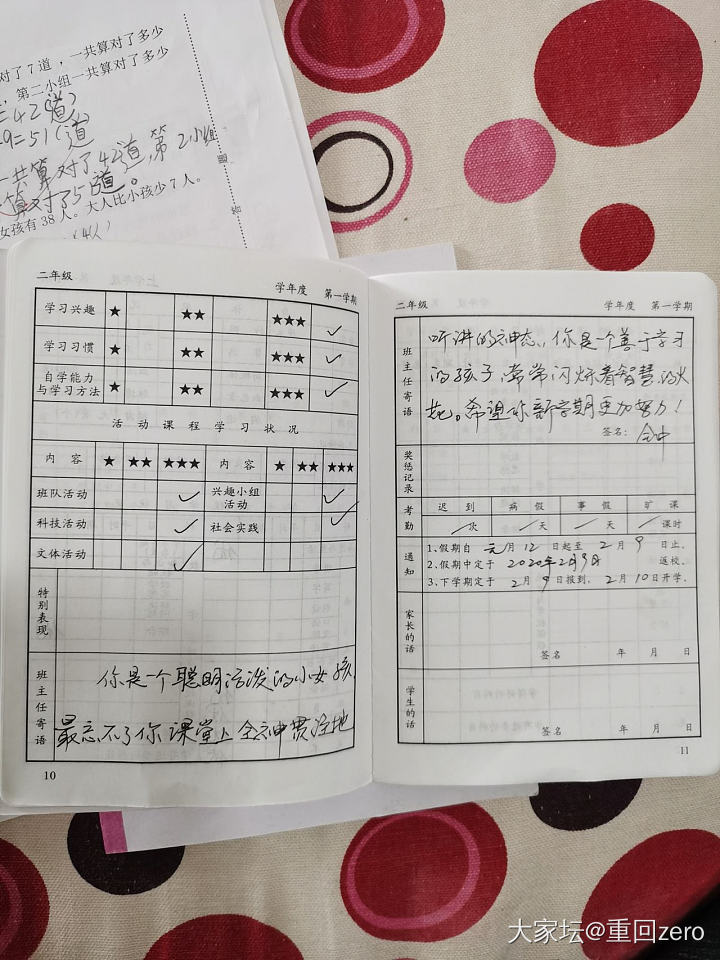 对了7道，一共算对了多少
第二小组一共算对了多少
=42(道)
9=51(道)
一共算对了42道,第2小组
算对了51道。
女孩有38人。大人比小孩少7人。
答
二年级
学年度 第一学期
学习兴趣 ★ ★★ ★★★ ✓
学习习惯 ★ ★★ ★★★ ✓
自学能力与学习方法 ★ ★★ ★★★ ✓
活动课程学习状况
内容 ★ ★★ ★★★ 内容 ★ ★★ ★★★
班队活动 ✓ 兴趣小组活动 ✓
科技活动 ✓ 社会实践 ✓
文体活动 ✓
特别表现
班主任寄语
你是一个聪明活泼的小女孩,
最忘不了你课堂上全神贯注地
10
二年级
学年度 第一学期
班主任寄语
听讲的神态,你是一个善于学习
的孩子,常常闪烁着智慧的火
花。希望你新学期更加努力！
签名：
奖惩记录
考勤
迟到 病假 事假 旷课
/次 /天 /天 /课时
通知
1、假期自元月12日起至2月9日止。
2、假期中定于2020年2月9日返校。
3、下学期定于2月9日报到，2月10日开学。
家长的话
签名 年 月 日
学生的话
签名 年 月 日
11
大家坛@重回zero